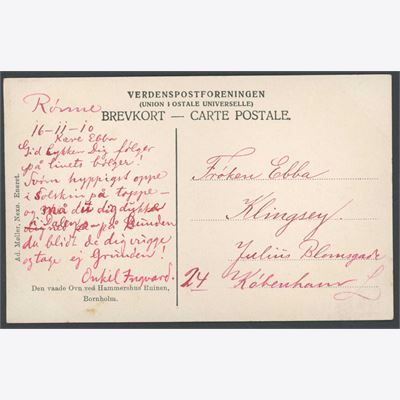 VERDENSPOSTFORENINGEN
(UNION POSTALE UNIVERSELLE)
BREVKORT — CARTE POSTALE.
Rönne
16-11-10
Kære Ebba
Gid Lykken Dig følger
på livets bølger!
Svøm hyppigst oppe
i Solskin på toppe –
og må det dig dykke
på Bunden
du blidt de dig vugge
og tage ej Grunden!
Onkel Ingvard.
Ad. Møller, Nexø. Eneret.
Den vaade Ovn ved Hammershus Ruinen,
Bornholm.
Frøken Ebba
Klingsey.
Julius Blomsgade
24
København L